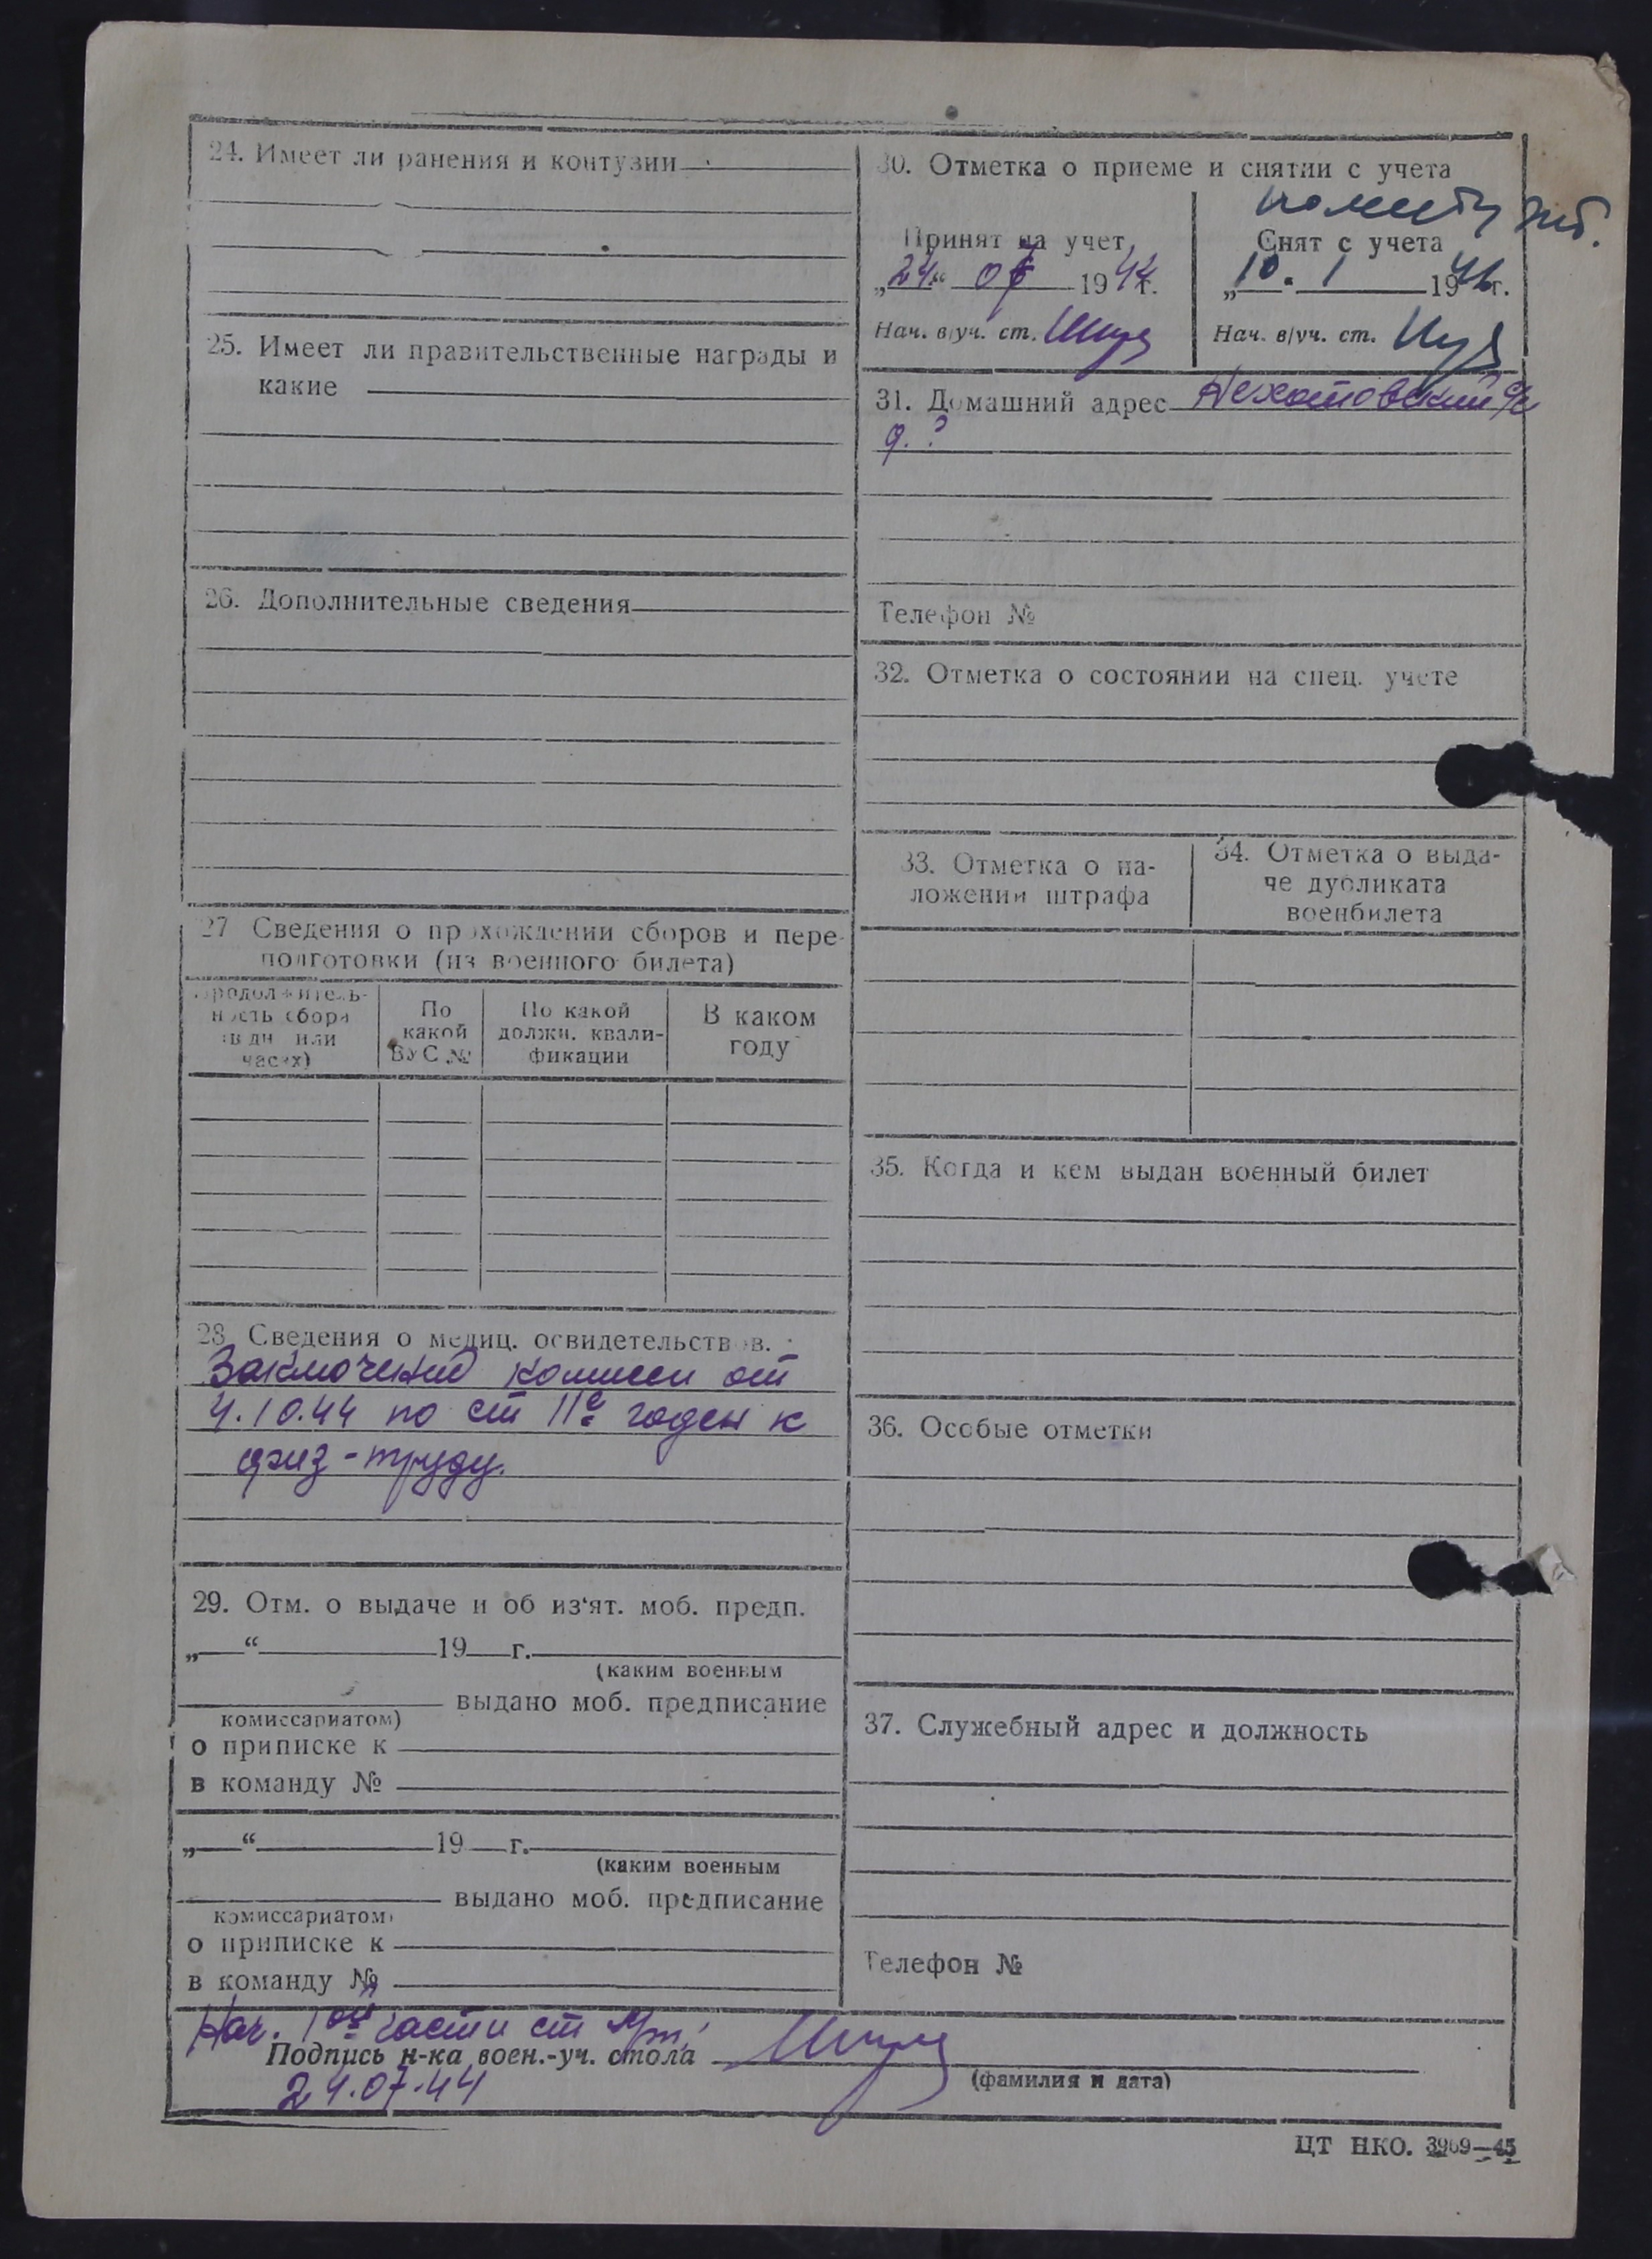 24. Имеет ли ранения и контузии
25. Имеет ли правительственные награды и
какие
26. Дополнительные сведения
27 Сведения о прохождении сборов и пере-
подготовки (из военного билета)
Продолжитель-
ность сбора
(в дн или
часах)
По
какой
ВУС №
По какой
должн. квали-
фикации
В каком
году
28. Сведения о медиц. освидетельствов.
Заключение комисси от
4.10.44 по ст 11е годен к
физ-труду.
29. Отм. о выдаче и об из'ят. моб. предп.
„ “ 19 г.
(каким военным
выдано моб. предписание
комиссариатом)
о приписке к
в команду №
„ “ 19 г.
(каким военным
выдано моб. предписание
комиссариатом)
о приписке к
в команду №
30. Отметка о приеме и снятии с учета
Принят на учет
„24“ 07 1944г.
Нач. в/уч. ст.
Снят с учета
„10. 1 1946г.
Нач. в/уч. ст.
31. Домашний адрес Нехотовский с/с
д. ?
Телефон №
32. Отметка о состоянии на спец. учете
33. Отметка о на-
ложении штрафа
34. Отметка о выда-
че дубликата
военбилета
35. Когда и кем выдан военный билет
36. Особые отметки
37. Служебный адрес и должность
Телефон №
Нач. 1ой части ст
Подпись н-ка воен.-уч. стола
(фамилия и дата)
24.07.44
ЦТ НКО. 3969—45